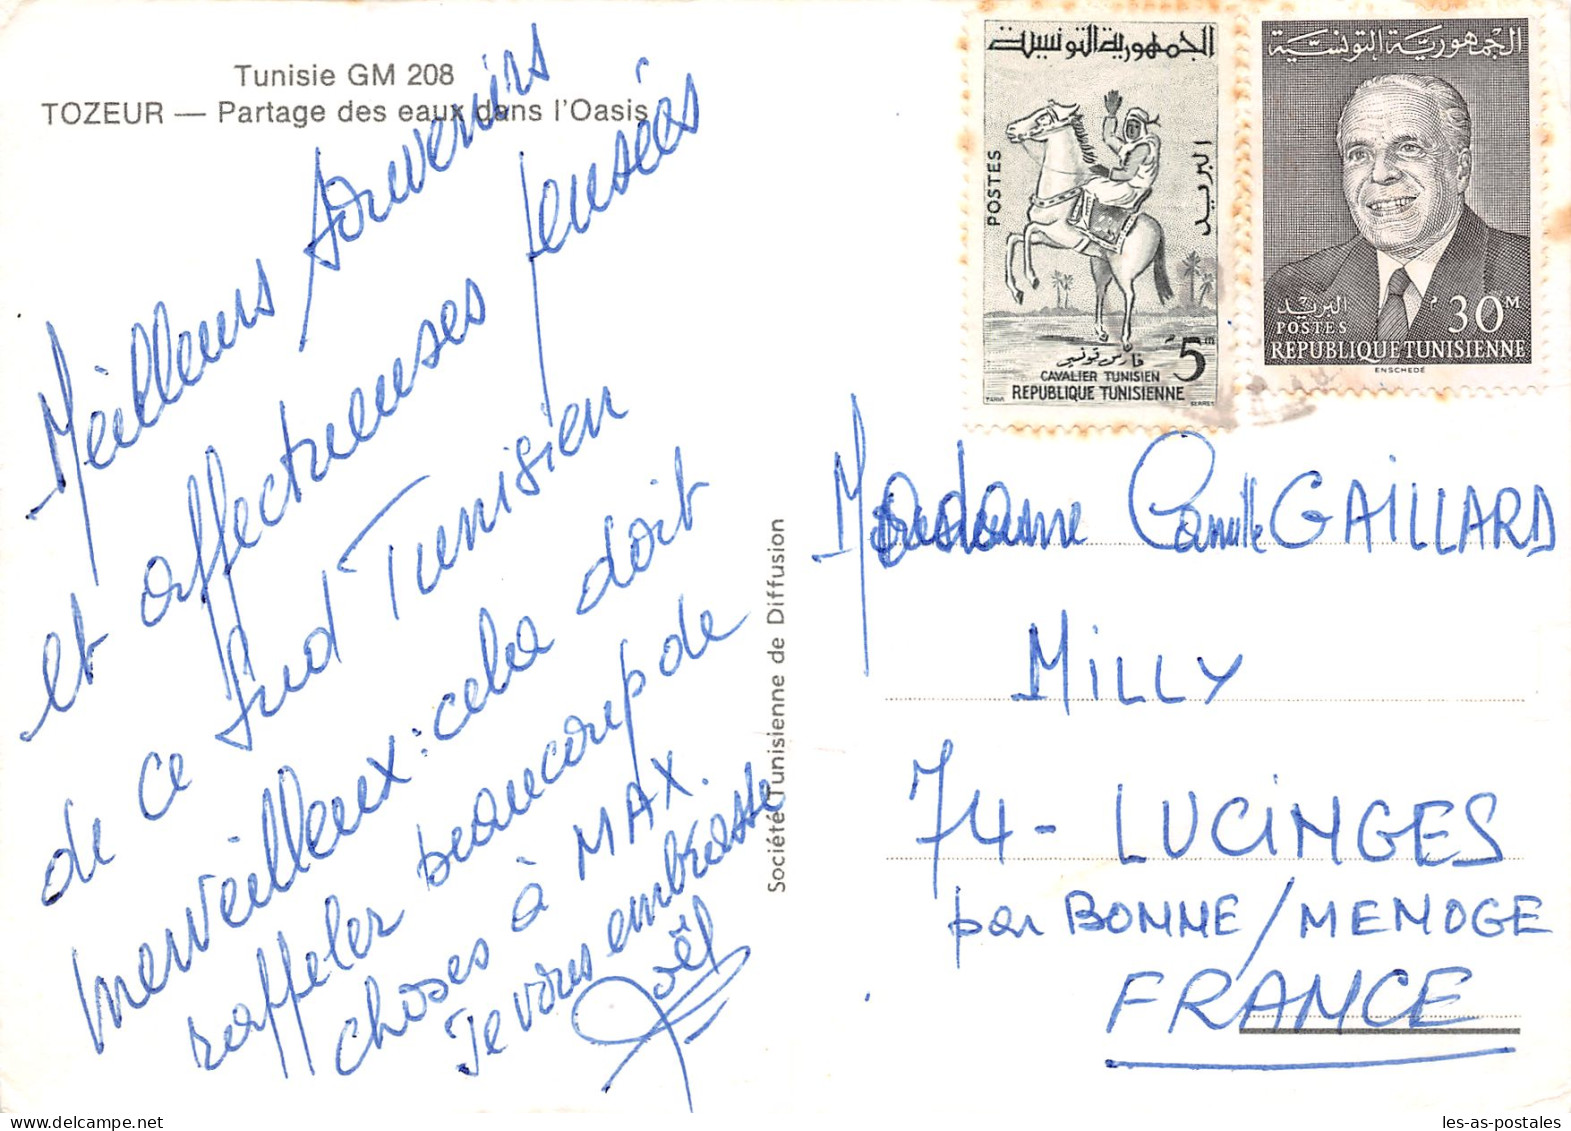 Tunisie GM 208
TOZEUR — Partage des eaux dans l'Oasis
Meilleurs souvenirs
et affectueuses pensées
de ce Sud Tunisien
merveilleux : cela doit
rappeler beaucoup de
choses à MAX.
Je vous embrasse
Joël
Société Tunisienne de Diffusion
الجمهورية التونسية
POSTES
البريد
فارس تونسي
5m
CAVALIER TUNISIEN
REPUBLIQUE TUNISIENNE
الجمهورية التونسية
البريد
POSTES
م 30M
REPUBLIQUE TUNISIENNE
ENSCHEDÉ
Madame Camille GAILLARD
MILLY
74 - LUCINGES
par BONNE/MENOGE
FRANCE
les-as-postales